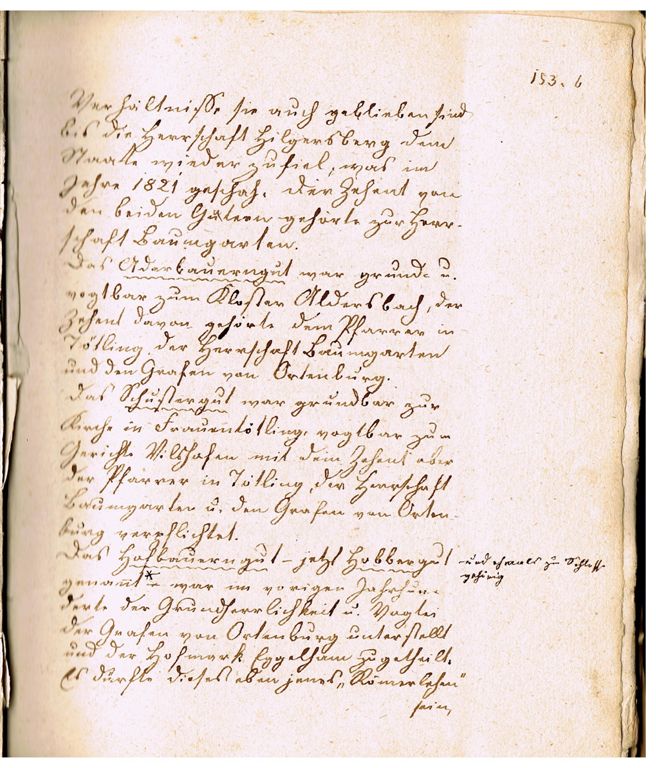 153. b
Verhältnisse sie auch geblieben sind
bis die Herrschaft Hilgersberg dem
Staate wieder zufiel, was im
Jahre 1821 geschah. Der Zehent von
den beiden Gütern gehörte zur Herr-
schaft Baumgarten.
Das Aderbauerngut war grund- u.
vogtbar zum Kloster Aldersbach, der
Zehent davon gehörte dem Pfarrer in
Tötling, der Herrschaft Baumgarten
und den Grafen von Ortenburg.
Das Schustergut war grundbar zur
Kirche in Frauentötling, vogtbar zum
Gerichte Vilshofen mit dem Zehent aber
der Pfarrer in Tötling, der Herrschaft
Baumgarten u. den Grafen von Orten-
burg verpflichtet.
Das Hofbauerngut – jetzt Hobbergut
genannt* – war im vorigen Jahrhun-
derte der Grundherrlichkeit u. Vogtei
der Grafen von Ortenburg unterstellt
und der Hofmark Egglham zugetheilt.
Es dürfte dieses eben jenes „Römerlehen"
sein,
und ehemals zu Schloß
gehörig